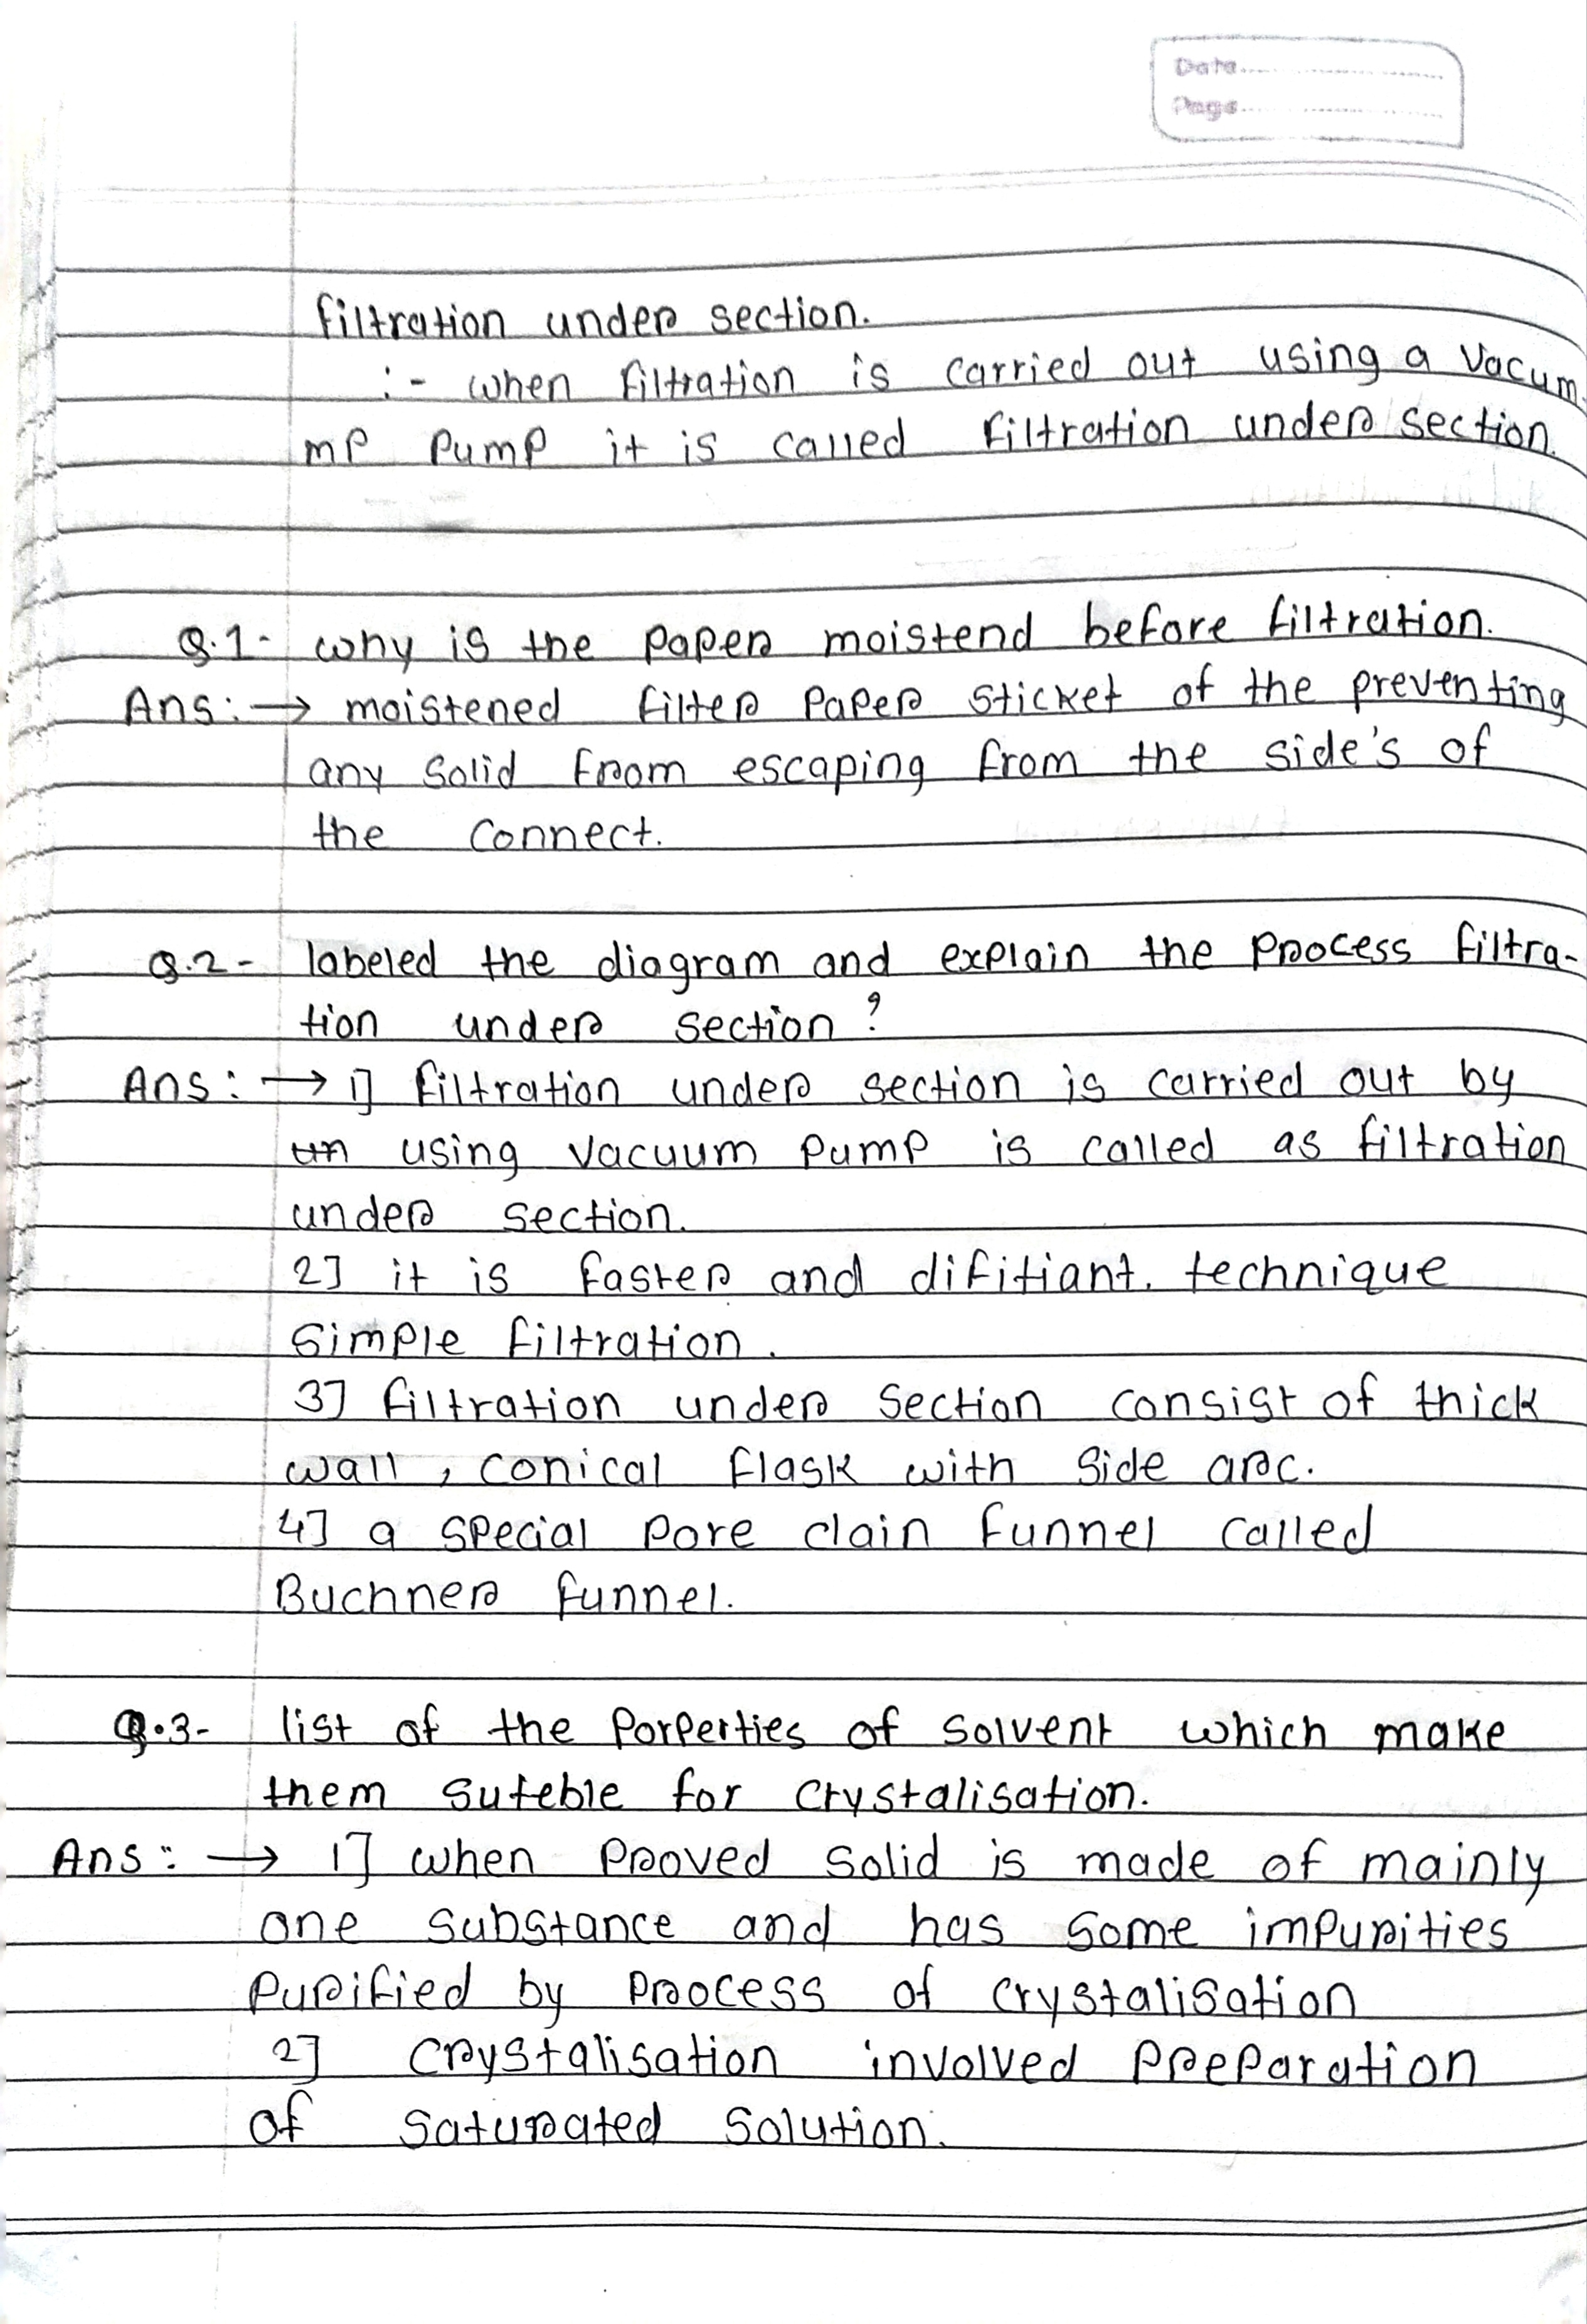 Date
Page
filtration under section.
:- when filtration is carried out using a vacum.
mp pump it is called filtration under section.
Q.1- why is the paper moistend before filtration.
Ans:→ moistened filter paper sticket of the preventing
any solid from escaping from the side's of
the connect.
Q.2- labeled the diagram and explain the process filtra-
tion under section?
Ans:→ 1] filtration under section is carried out by
using vacuum pump is called as filtration
under section.
2] it is faster and difitiant. technique
simple filtration.
3] filtration under section consist of thick
wall, conical flask with side arc.
4] a special pore clain funnel called
Buchner funnel.
Q.3- list of the porperties of solvent which make
them suteble for crystalisation.
Ans:→ 1] when proved solid is made of mainly
one substance and has some impurities
purified by process of crystalisation
2] crystalisation involved preparation
of saturated solution.